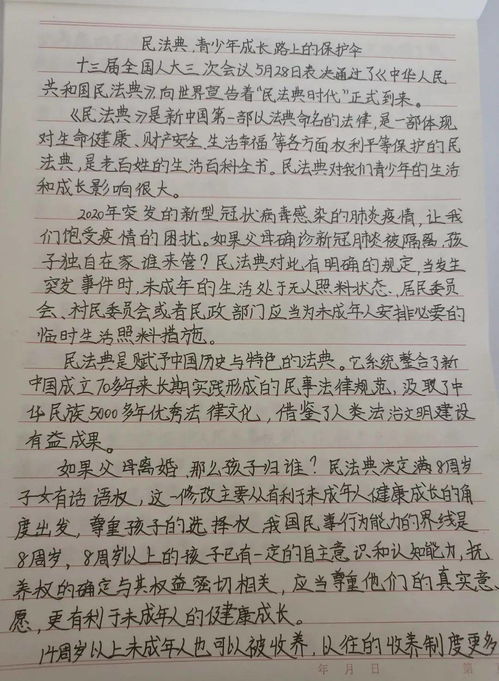 民法典,青少年成长路上的保护伞
十三届全国人大三次会议5月28日表决通过了《中华人民
共和国民法典》向世界宣告着“民法典时代”正式到来。
《民法典》是新中国第一部以法典命名的法律,是一部体现
对生命健康、财产安全、生活幸福等各方面权利平等保护的民
法典,是老百姓的生活百科全书。民法典对我们青少年的生活
和成长影响很大。
2020年突发的新型冠状病毒感染的肺炎疫情,让我
们饱受疫情的困扰。如果父母确诊新冠肺炎被隔离,孩
子独自在家谁来管?民法典对此有明确的规定,当发生
突发事件时,未成年的生活处于无人照料状态,居民委员
会、村民委员会或者民政部门应当为未成年人安排必要的
临时生活照料措施。
民法典是赋予中国历史与特色的法典。它系统整合了新
中国成立70多年来长期实践形成的民事法律规范,汲取了中
华民族5000多年优秀法律文化,借鉴了人类法治文明建设
有益成果。
如果父母离婚,那么孩子归谁?民法典决定满8周岁
子女有话语权,这一修改主要从有利于未成年人健康成长的角
度出发,尊重孩子的选择权,我国民事行为能力的界线是
8周岁,8周岁以上的孩子已有一定的自主意识和认知能力,抚
养权的确定与其权益密切相关,应当尊重他们的真实意
愿,更有利于未成年人的健康成长。
14周岁以上未成年人也可以被收养,以往的收养制度更多
年月日
第